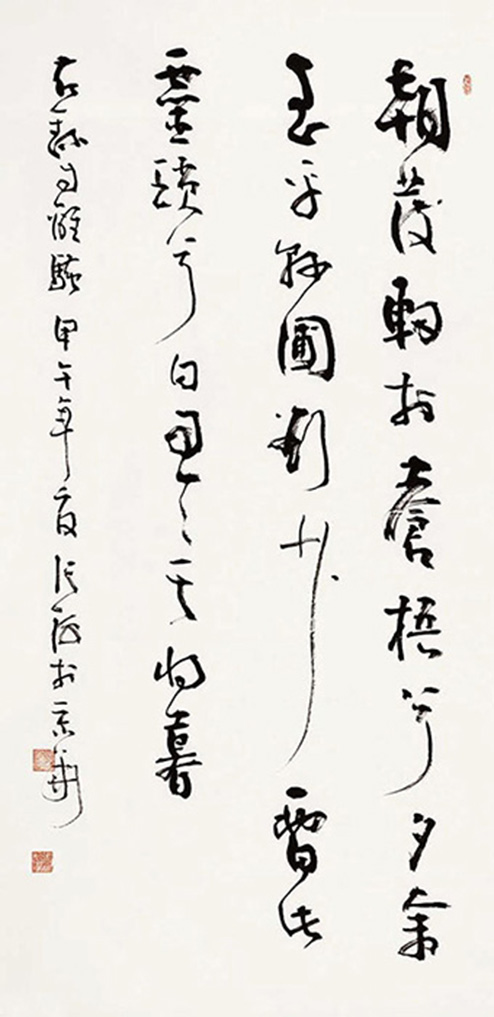 朝發軔於蒼梧兮夕余
至乎縣圃欲少留此
靈瑣兮日忽々其將暮
右錄自離騷 甲午年夏 張海於京華